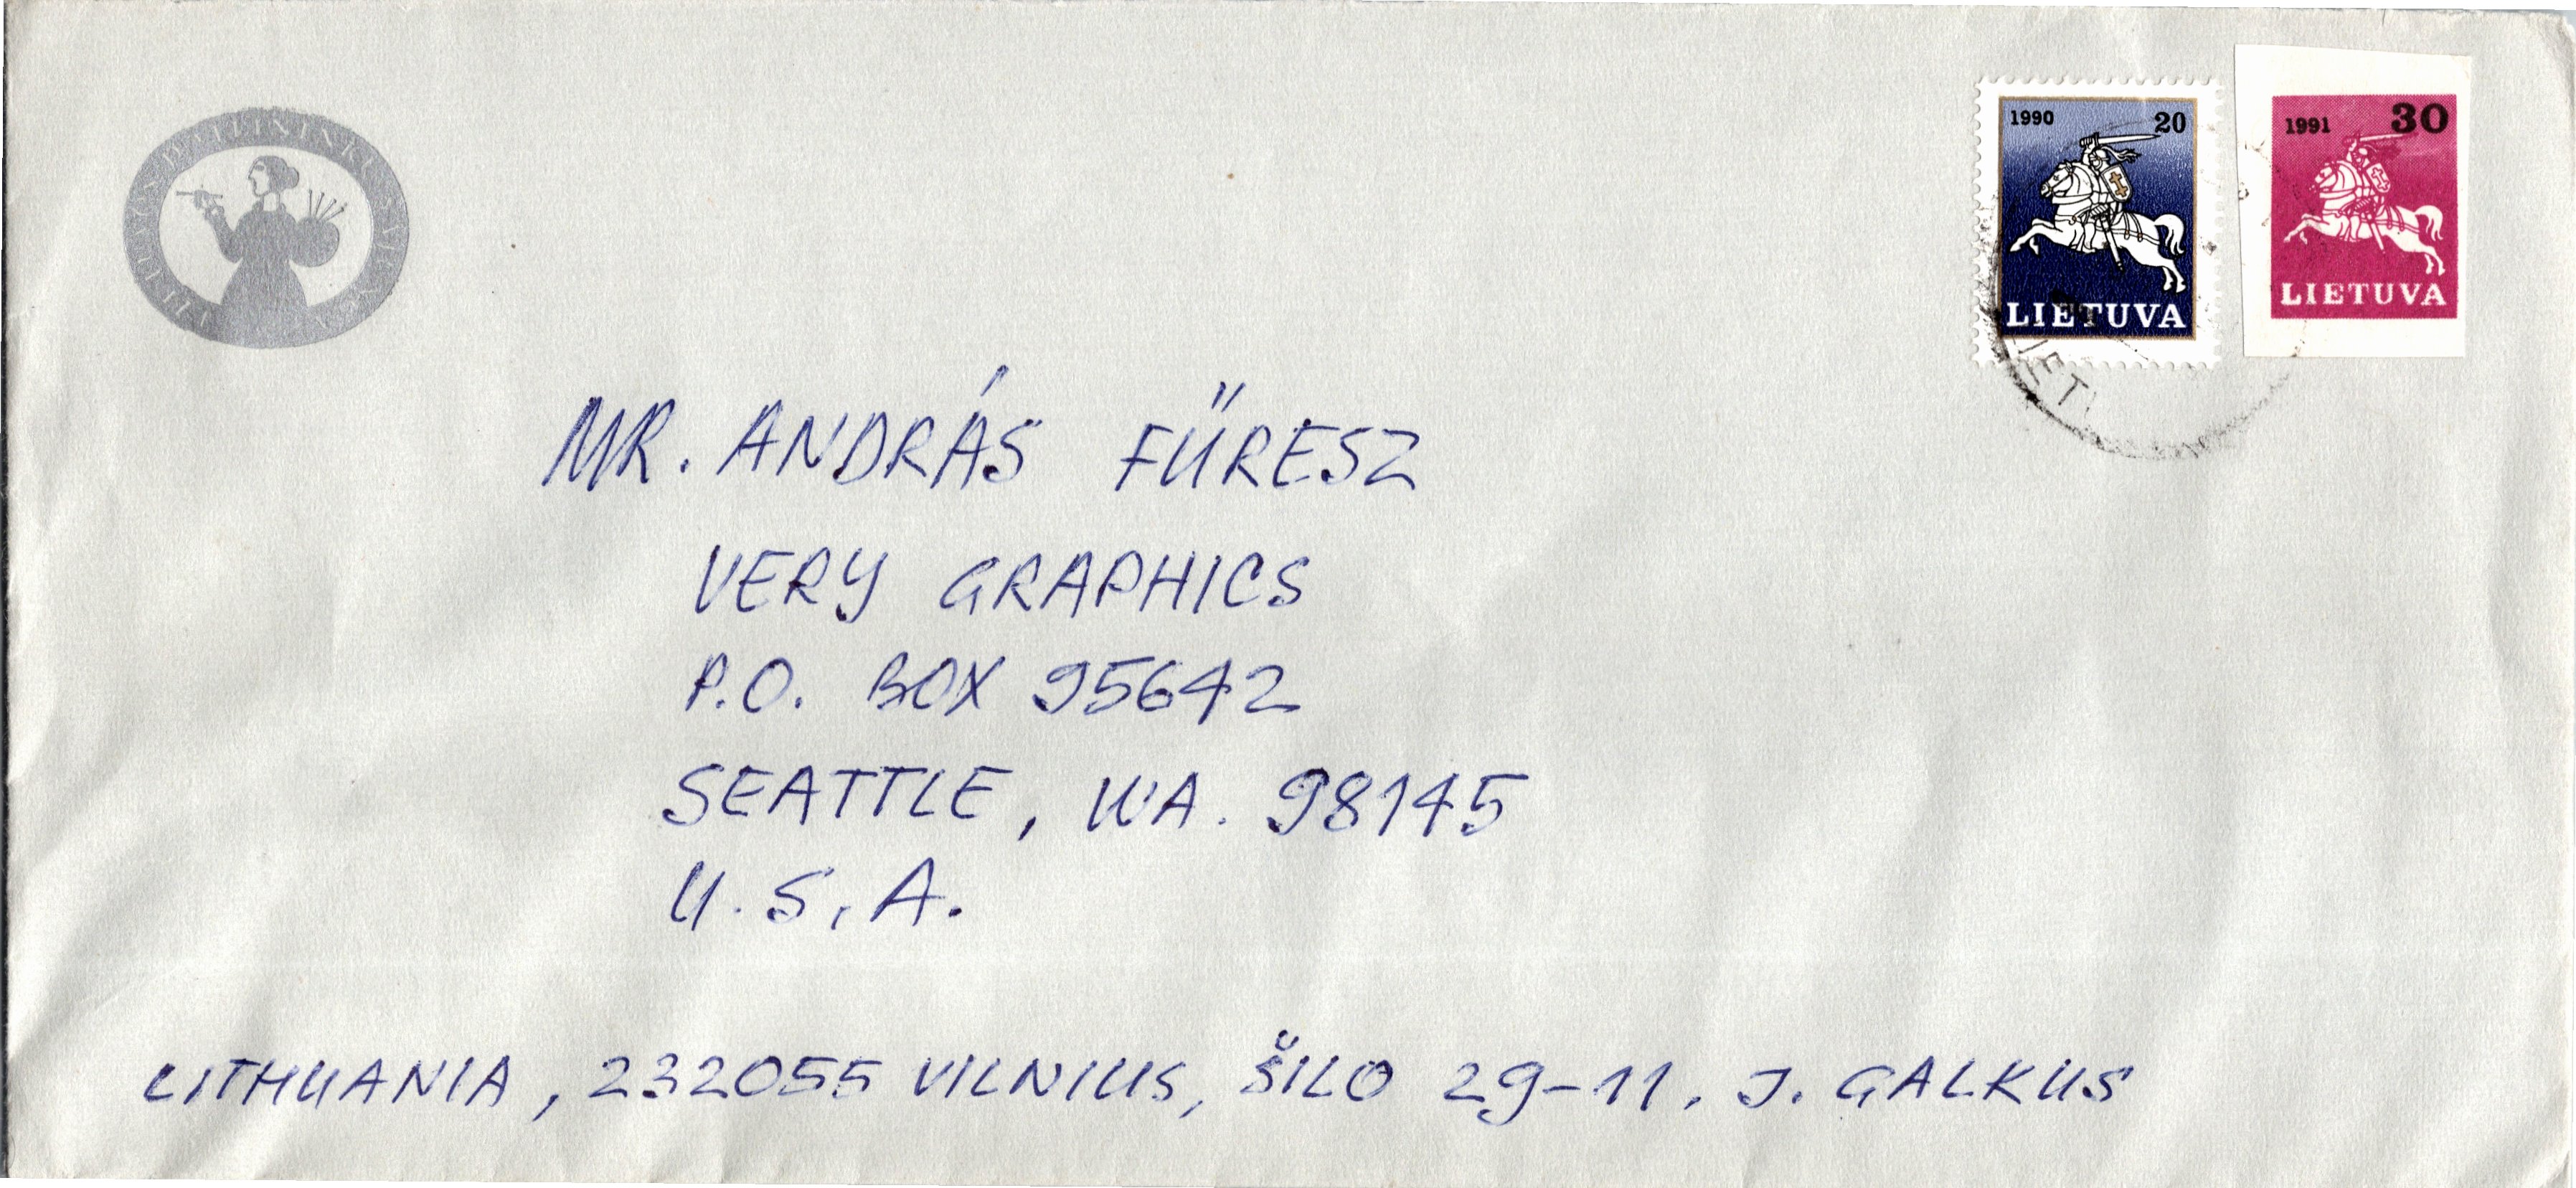 1990 20
LIETUVA
1991 30
LIETUVA
MR. ANDRÁS FŰRESZ
VERY GRAPHICS
P.O. BOX 95642
SEATTLE, WA. 98145
U.S.A.
LITHUANIA, 232055 VILNIUS, ŠILO 29-11, J. GALKUS